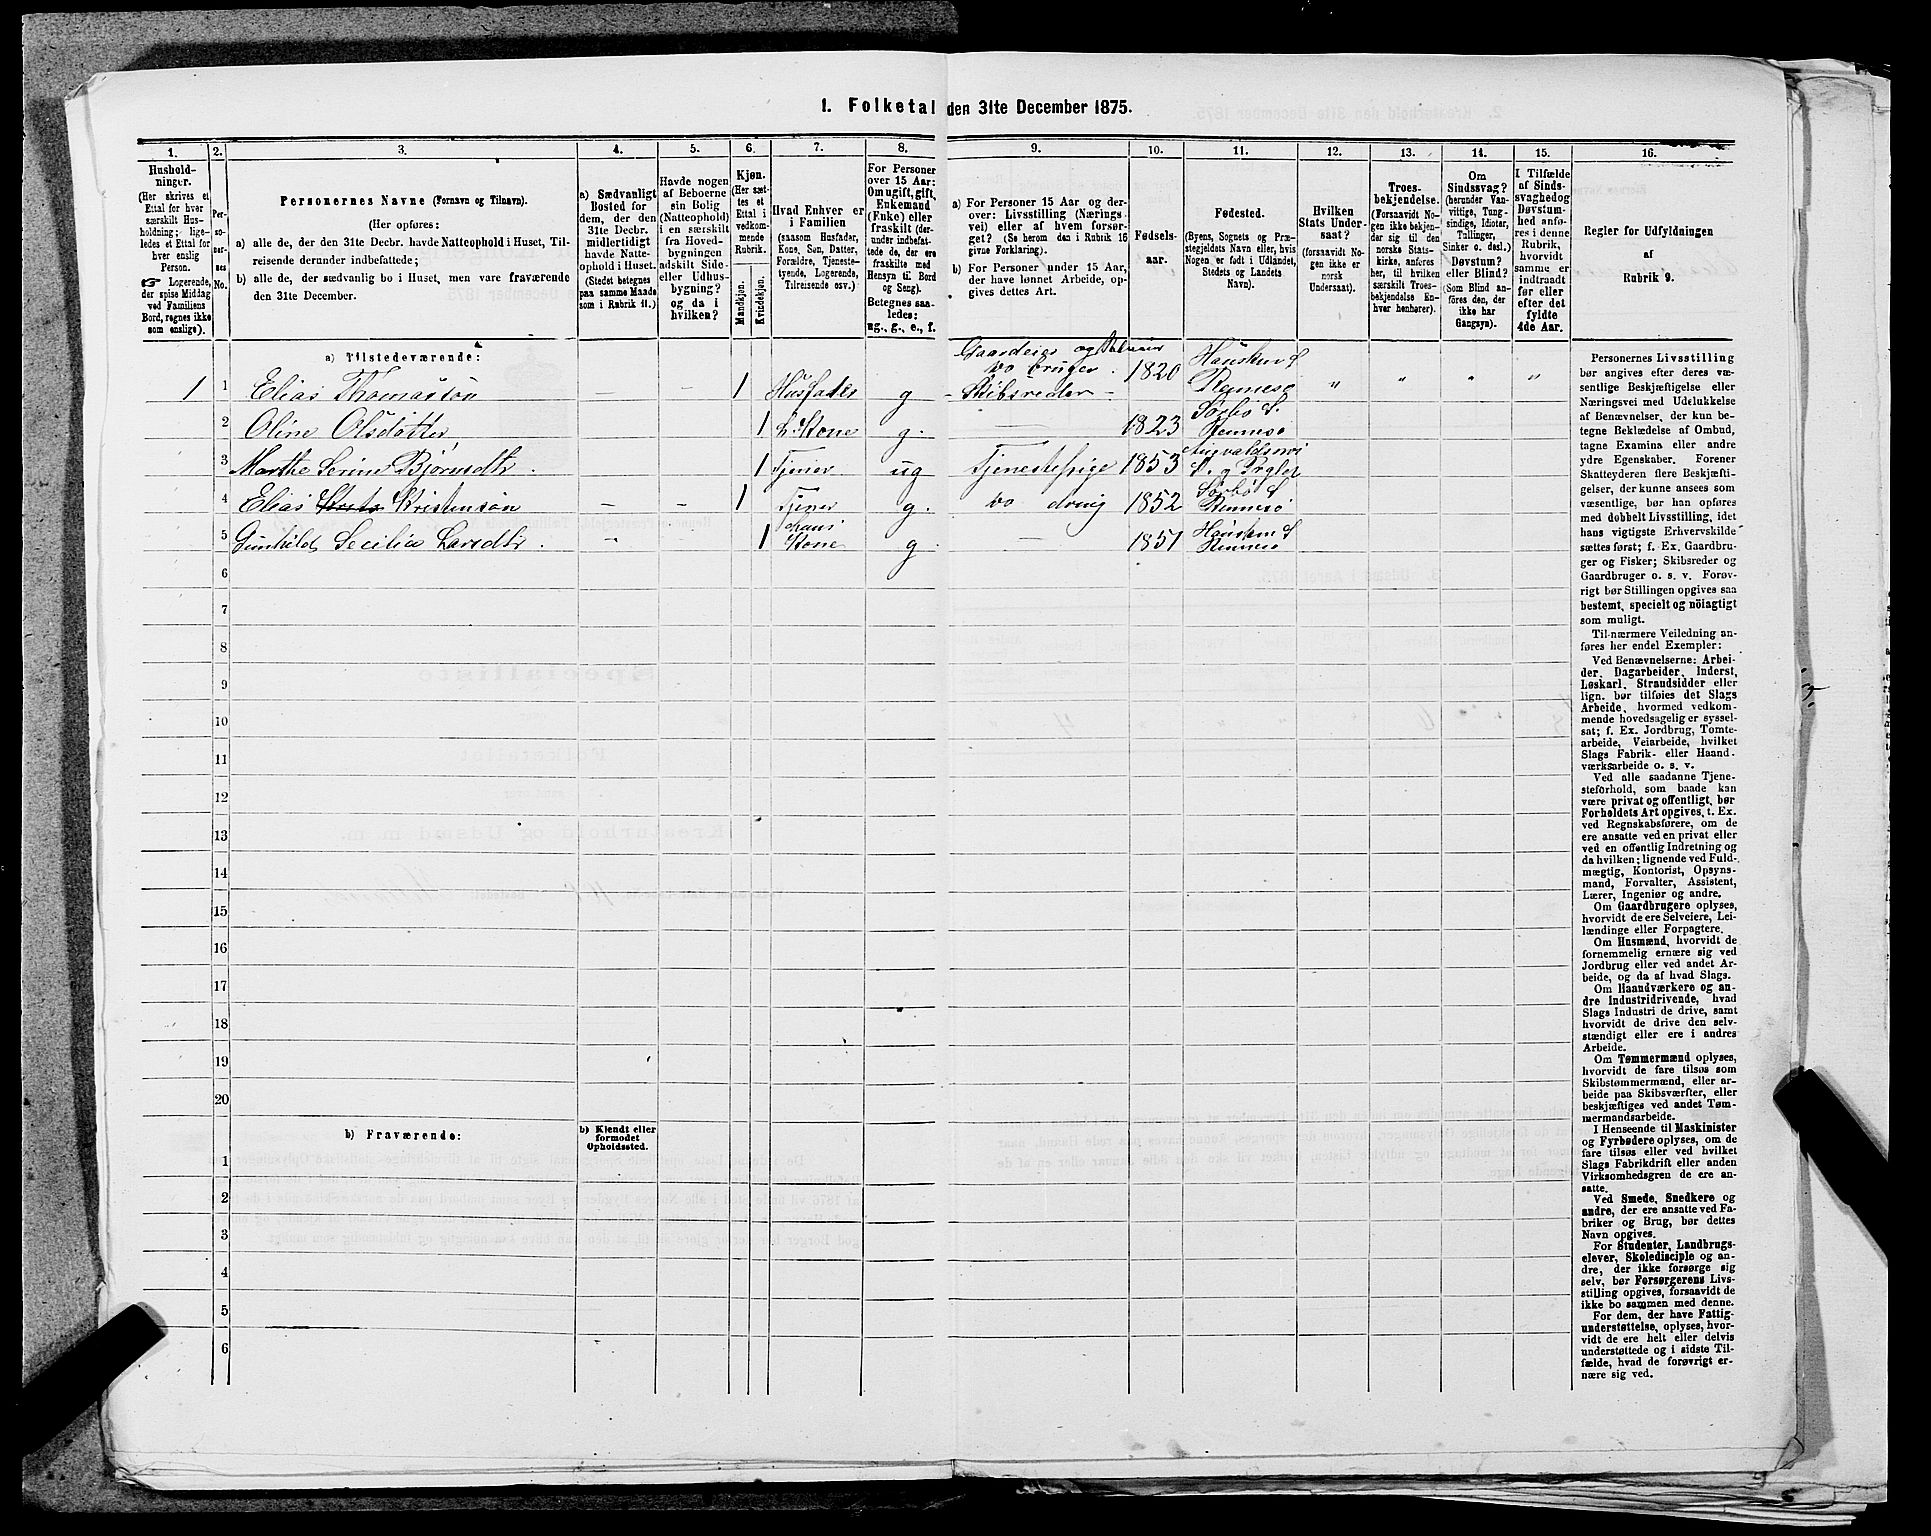 1. Folketal den 31te December 1875.
1. 2. 3. 4. 5. 6. 7. 8. 9. 10. 11. 12. 13. 14. 15. 16.
Hushold-
ninger.
(Her skrives et
Ettal for hver
særskilt Hus-
holdning; lige-
ledes et Ettal for
hver enslig
Person.
☛ Logerende,
der spise Middag
ved Familiens
Bord, regnes ikke
som enslige).
Per-
so-
ner-
nes
No.
Personernes Navne (Fornavn og Tilnavn).
(Her opføres:
a) alle de, der den 31te Decbr. havde Natteophold i Huset, Til-
reisende derunder indbefattede;
b) alle de, der sædvanlig bo i Huset, men vare fraværende
den 31te December.
a) Sædvanligt
Bosted for
dem, der den
31te Decbr.
midlertidigt
havde Natte-
ophold i Huset.
(Stedet betegnes
paa samme Maade
som i Rubrik 11.)
Havde nogen
af Beboerne
sin Bolig
(Natteophold)
i en særskilt
fra Hoved-
bygningen
adskilt Side-
eller Udhus-
bygning?
og da i
hvilken?
Kjøn.
(Her sæt-
tes et
Ettal i
vedkom-
mende
Rubrik.
Mandkjøn.
Kvindekjøn.
Hvad Enhver er
i Familien
(saasom Husfader,
Kone, Søn, Datter,
Forældre, Tjeneste-
tyende, Logerende,
Tilreisende osv.)
For Personer
over 15 Aar:
Om ugift, gift,
Enkemand
(Enke) eller
fraskilt (der-
under indbefat-
tede de, der ere
fraskilte med
Hensyn til Bord
og Seng).
Betegnes saa-
ledes:
ug., g., e., f.
a) For Personer 15 Aar og der-
over: Livsstilling (Nærings-
vei) eller af hvem forsør-
get? (Se herom den i Rubrik 16
givne Forklaring).
b) For Personer under 15 Aar,
der have lønnet Arbeide, op-
gives dettes Art.
Fødsels-
aar.
Fødested.
(Byens, Sognets og Præ-
stegjeldets Navn eller, hvis
Nogen er født i Udlandet,
Stedets og Landets
Navn).
Hvilken
Stats Under-
saat?
(forsaavidt No-
gen ikke er
norsk
Undersaat).
Troes-
bekjendelse.
(Forsaavidt No-
gen ikke bekjen-
der sig til den
norske Stats-
kirke, anføres
her, til hvilken
særskilt Troes-
bekjendelse En-
hver henhører).
Om
Sindssvag?
(herunder Van-
vittige, Tung-
sindige, Idioter,
Tullinger,
Sinker o. desl.)
Døvstum?
eller Blind?
(Som Blind an-
føres den, der
ikke har
Gangsyn).
I Tilfælde
af Sinds-
svaghed og
Døvstum-
hed anfø-
res i denne
Rubrik,
hvorvidt
samme er
indtraadt
før eller
efter det
fyldte
4de Aar.
Regler for Udfyldningen
af
Rubrik 9.
a) Tilstedeværende:
1 1 Elias Thomassøn — — 1 Husfader g Gaardeier og
bruger.
— Skibsreder — 1820 Hausken S
Rennesø " " " "
2 Oline Olsdatter 1 Kone g. — 1823 Sørbø S.
Rennesø
3 Marthe Serine Bjørnsdtr. 1 Tjener ug Tjenestepige 1853
4 Elias Kristensøn — — 1 Tjener g. do dreng 1852 Sørbø S
Rennesø
5 Gunhild Secilia Larsdtr. 1 hans
Kone g — 1851 Hausken S
Rennesø
6
7
8
9
10
11
12
13
14
15
16
17
18
19
20
b) Fraværende:
b) Kjendt eller
formodet
Opholdssted.
1
2
3
4
5
6
Personernes Livsstilling
bør angives efter deres væ-
sentlige Beskjæftigelse eller
Næringsvei med Udelukkelse
af Benævnelser, der kun be-
tegne Beklædelse af Ombud,
tagne Examina eller andre
ydre Egenskaber. Forener
Skatteyderen flere Beskjæfti-
gelser, der kunne ansees som
væsentlige, bør han opføres
med dobbelt Livsstilling, idet
hans vigtigste Erhvervskilde
sættes først; f. Ex. Gaardbru-
ger og Fisker; Skibsreder og
Gaardbruger o. s. v. Forøv-
rigt bør Stillingen opgives saa
bestemt, specielt og nöiagtigt
som muligt.
Til nærmere Veiledning an-
føres her endel Exempler:
Ved Benævnelserne: Arbei-
der, Dagarbeider, Inderst,
Løskarl, Strandsidder eller
lign. bør tilføies det Slags
Arbeide, hvormed vedkom-
mende hovedsagelig er syssel-
sat; f. Ex. Jordbrug, Tomte-
arbeide, Veiarbeide, hvilket
Slags Fabrik- eller Haand-
værksarbeide o. s. v.
Ved alle saadanne Tjene-
steforhold, som baade kan
være privat og offentligt, bør
Forholdets Art opgives, t. Ex.
ved Regnskabsførere, om de
ere ansatte ved en privat eller
ved en offentlig Indretning og
da hvilken; lignende ved Fuld-
mægtig, Kontorist, Opsyns-
mand, Forvalter, Assistent,
Lærer, Ingeniør og andre.
Om Gaardbrugere oplyses,
hvorvidt de ere Selveiere, Lei-
lændinge eller Forpagtere.
Om Husmænd, hvorvidt de
fornemmelig ernære sig ved
Jordbrug eller ved andet Ar-
beide, og da af hvad Slags.
Om Haandværkere og an-
dre Industridrivende, hvad
Slags Industri de drive, samt
hvorvidt de drive den selv-
stændigt eller ere i andres
Arbeide.
Om Tømmermænd oplyses,
hvorvidt de fare tilsøs som
Skibstømmermænd, eller ar-
beide paa Skibsværfter, eller
beskjæftiges ved andet Tøm-
mermandsarbeide.
I Henseende til Maskinister
og Fyrbødere oplyses, om de
fare tilsøs eller ved hvilket
Slags Fabrikdrift eller anden
Virksomhedsgren de ere an-
satte.
Ved Smede, Snedkere og
andre, der ere ansatte ved Fa-
briker og Brug, bør dettes
Navn opgives.
For Studenter, Landbrugs-
elever, Skoledisciple og an-
dre, der ikke forsørge sig
selv, bør Forsørgerens Livs-
stilling opgives, forsaavidt de
ikke bo sammen med denne.
For dem, der have Fattig-
understøttelse, oplyses, hvor-
vidt de ere helt eller delvis
understøttede og i sidste Til-
fælde, hvad de forøvrigt er-
nære sig ved.